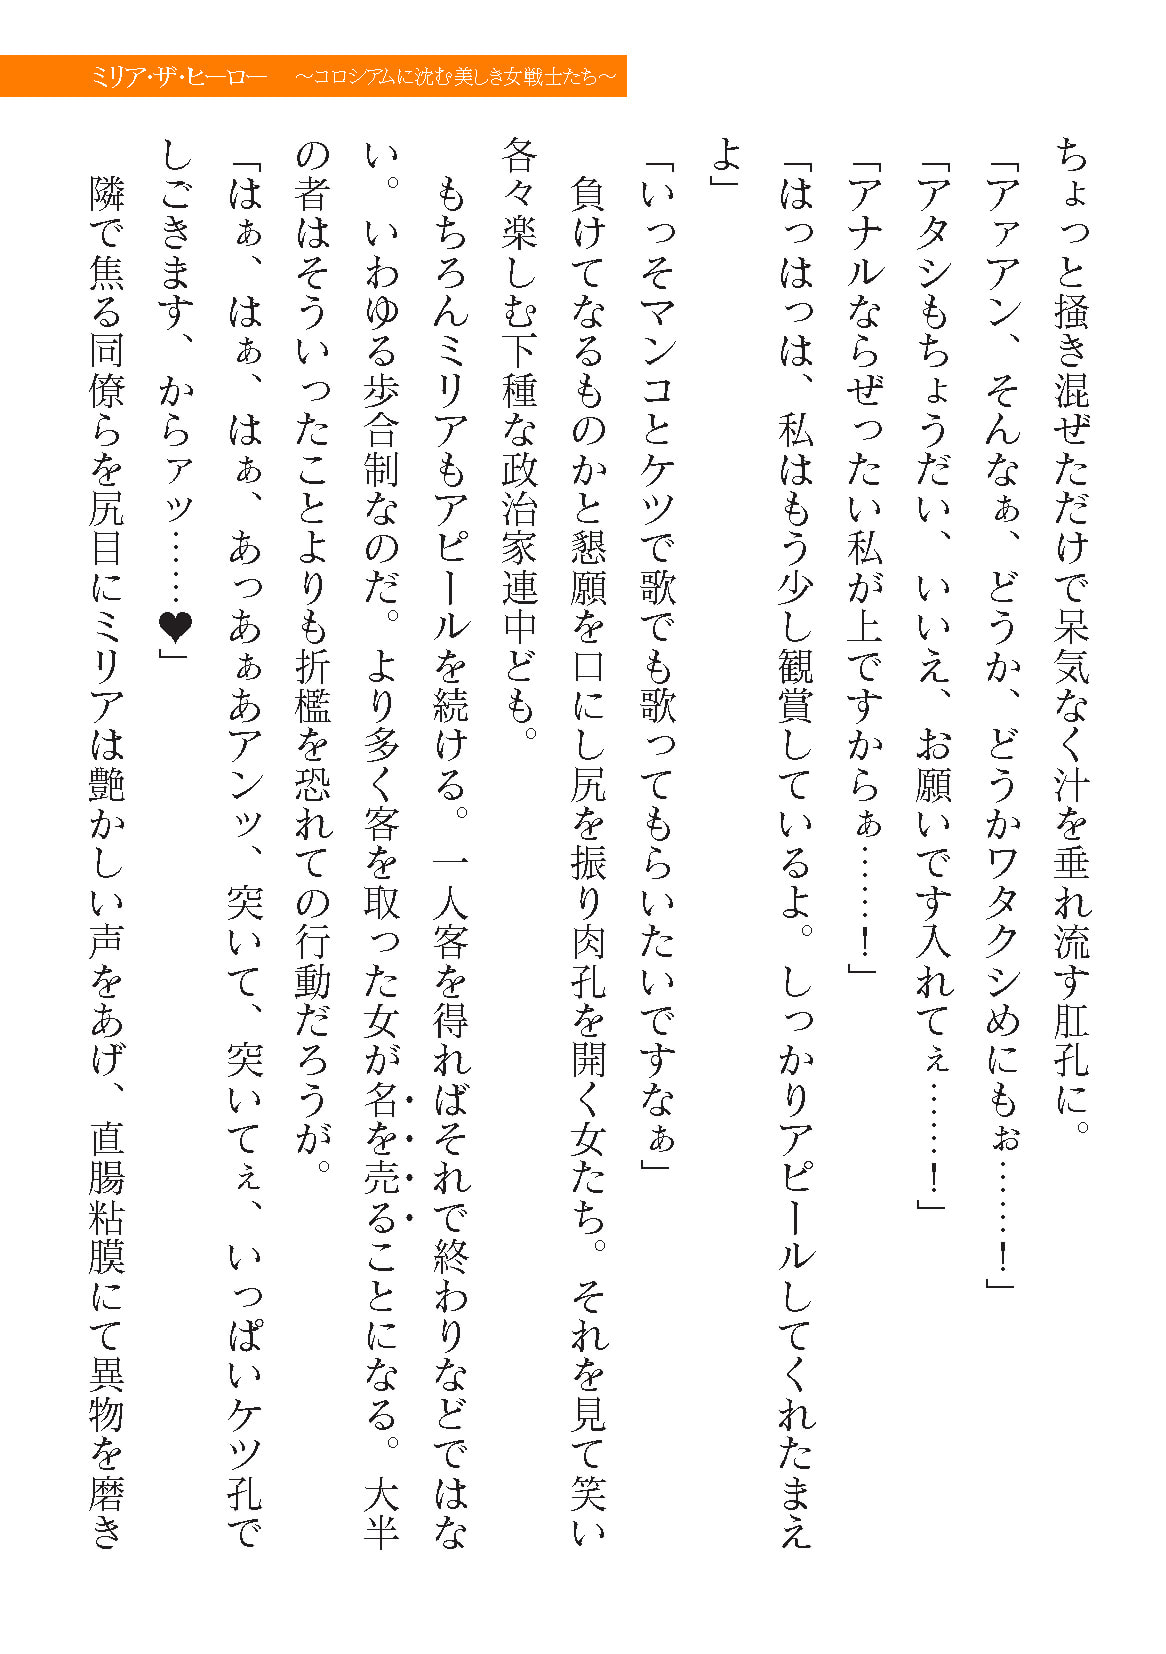 ミリア・ザ・ヒーロー　～コロシアムに沈む美しき女戦士たち～
ちょっと掻き混ぜただけで呆気なく汁を垂れ流す肛孔に。
「アァアン、そんなぁ、どうか、どうかワタクシめにもぉ……！」
「アタシもちょうだい、いいえ、お願いです入れてぇ……！」
「アナルならぜったい私が上ですからぁ……！」
「はっはっは、私はもう少し観賞しているよ。しっかりアピールしてくれたまえ
よ」
「いっそマンコとケツで歌でも歌ってもらいたいですなぁ」
　負けてなるものかと懇願を口にし尻を振り肉孔を開く女たち。それを見て笑い
各々楽しむ下種な政治家連中ども。
　もちろんミリアもアピールを続ける。一人客を得ればそれで終わりなどではな
い。いわゆる歩合制なのだ。より多く客を取った女が名を売ることになる。大半
の者はそういったことよりも折檻を恐れての行動だろうが。
「はぁ、はぁ、はぁ、あっあぁあアンッ、突いて、突いてぇ、いっぱいケツ孔で
しごきます、からァッ……♥」
　隣で焦る同僚らを尻目にミリアは艶かしい声をあげ、直腸粘膜にて異物を磨き